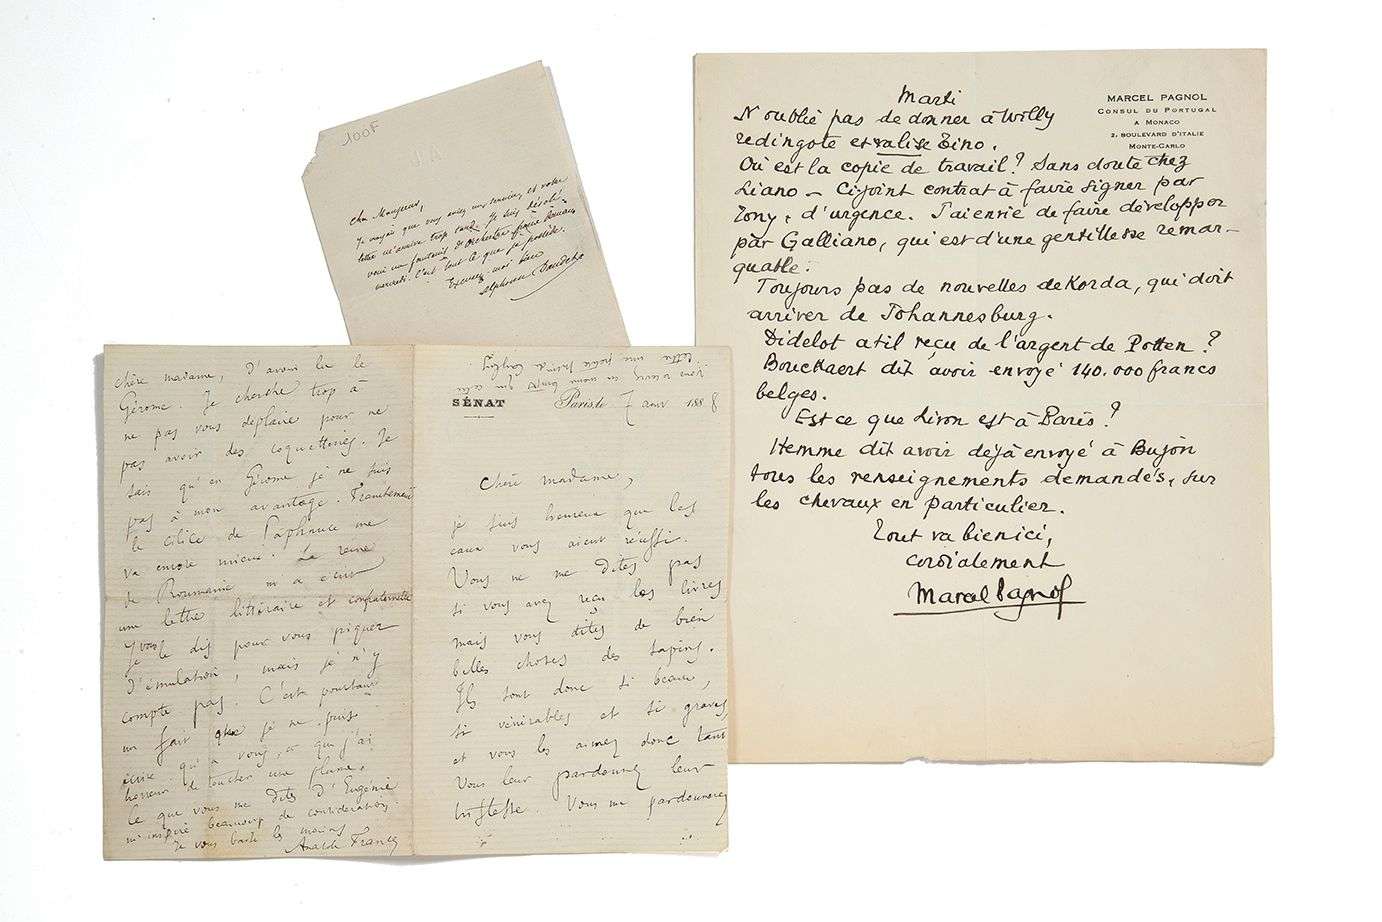 100F
Cher Monsieur,
Je voyais que vous aviez
lettre m'arrive trop tard. Je suis désolé.
un fauteuil d'orchestre
mercredi. C'est tout ce que je possède.
Excusez moi bien
Alphonse Daudet
MARCEL PAGNOL
CONSUL DU PORTUGAL
A MONACO
2, BOULEVARD D'ITALIE
MONTE-CARLO
Marti
N'oublie pas de donner à Willy
redingote et valise Tino.
Où est la copie de travail? Sans doute chez
Liano - Ci joint contrat à faire signer par
Tony, d'urgence. J'ai envie de faire développer
par Galliano, qui est d'une gentillesse remar-
quable.
Toujours pas de nouvelles de Korda, qui doit
arriver de Johannesburg.
Didelot a til reçu de l'argent de Potten?
Bouckaert dit avoir envoyé 140.000 francs
belges.
Est ce que Liron est à Paris?
Hemme dit avoir déjà envoyé à Bujon
tous les renseignements demandés, sur
les chevaux en particulier.
Tout va bien ici,
cordialement
Marcel Pagnol
chère madame, d'avoir lu le
Gérome. Je cherche trop à
ne pas vous déplaire pour ne
pas avoir des coquetteries. Je
sais qu'en Gérome je ne suis
pas à mon avantage. Franchement
le cilice de Paphnuce me
va encore mieux. La reine
de Roumanie m'a écrit
une lettre littéraire et confraternelle
Je vous le dis pour vous piquer
d'émulation, mais je n'y
compte pas. C'est pourtant
un fait que je ne puis
écrire qu'à vous, et que j'ai
horreur de toucher une plume.
Ce que vous me dites d'Eugénie
m'inspire beaucoup de considération.
Je vous baise les mains
Anatole France
SÉNAT
Paris le 7 1888
Chère madame,
je suis heureux que les
eaux vous aient réussi.
Vous ne me dites pas
si vous avez reçu les livres
mais vous dites de bien
belles choses des sapins.
Ils sont donc si beaux,
si vénérables et si graves,
et vous les aimez donc tant
Vous leur pardonnez leur
tristesse. Vous me pardonnerez